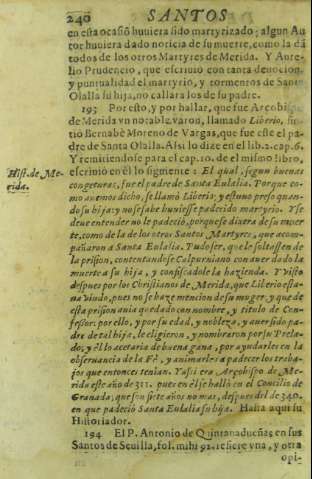 240 SANTOS
en esta ocasiõ huviera sido martyrizado; algun Au
tor huviera dado noticia de su muerte, como la dã
todos de los otros Martyres de Merida. Y Aure-
lio Prudencio, que escrivió con tanta devocion,
y puntualidad el martyrio, y tormentos de Santa
Olalla su hija, no callara los de su padre.
193 Por esto, y por hallar, que fue Arçobispo
de Merida vn notable varon, llamado Liberio, sin-
tió Bernabè Moreno de Vargas, que fue este el pa-
dre de Santa Olalla. Assi lo dize en el lib.2. cap.6.
Y remitiendose para el cap.10. de el mismo libro,
escrivió en èl lo siguiente: El qual, segun buenas
Hist. de Me-
rida.
congeturas, fue el padre de Santa Eulalia. Porque co-
mo avemos dicho, se llamó Liberio; y estuvo preso quan-
do su hija; y no se sabe huviesse padecido martyrio. Y se
deve entender no le padeció, porque se dixera de su muer
te, como la de los otros Santos Martyres, que acom-
pañaron a Santa Eulalia. Pudo ser, que le soltassen de
la prision, contentandose Calpurniano con aver dado la
muerte a su hija, y confiscadole la hazienda. Y visto
despues por los Christianos de Merida, que Liberio esta-
va viudo, pues no se haze mencion de su muger, y que de
esta prision avia quedado con nombre, y titulo de Con-
fessor: por ello, y por su edad, y nobleza, y aver sido pa-
dre de tal hija, le eligieron, y nombraron por su Prela-
do; y èl lo acetaria de buena gana, por ayudarles en la
observancia de la Fè, y animarles a padecer los traba-
jos que entonces tenian. Ya si era Arçobispo de Me-
rida este año de 311. pues en èl se halló en el Concilio de
Granada, que son siete años no mas, despues del de 340.
en que padeció Santa Eulalia su hija. Hasta aqui su
Historiador.
194 El P. Antonio de Quintanadueñas, en sus
Santos de Sevilla, fol. mihi 92. refiere vna, y otra
opi-